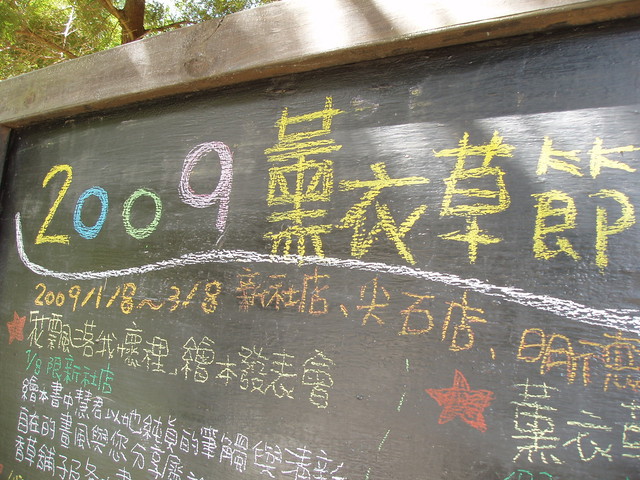 2009 薰衣草節
2009/1/8~3/8 新社店、尖石店、明德
秋飄落我懷裡」繪本發表會
1/8 限新社店
繪本書中慧君以她純真的筆觸與清新
自在的畫風與您分享屬於
香草舖子
薰衣草